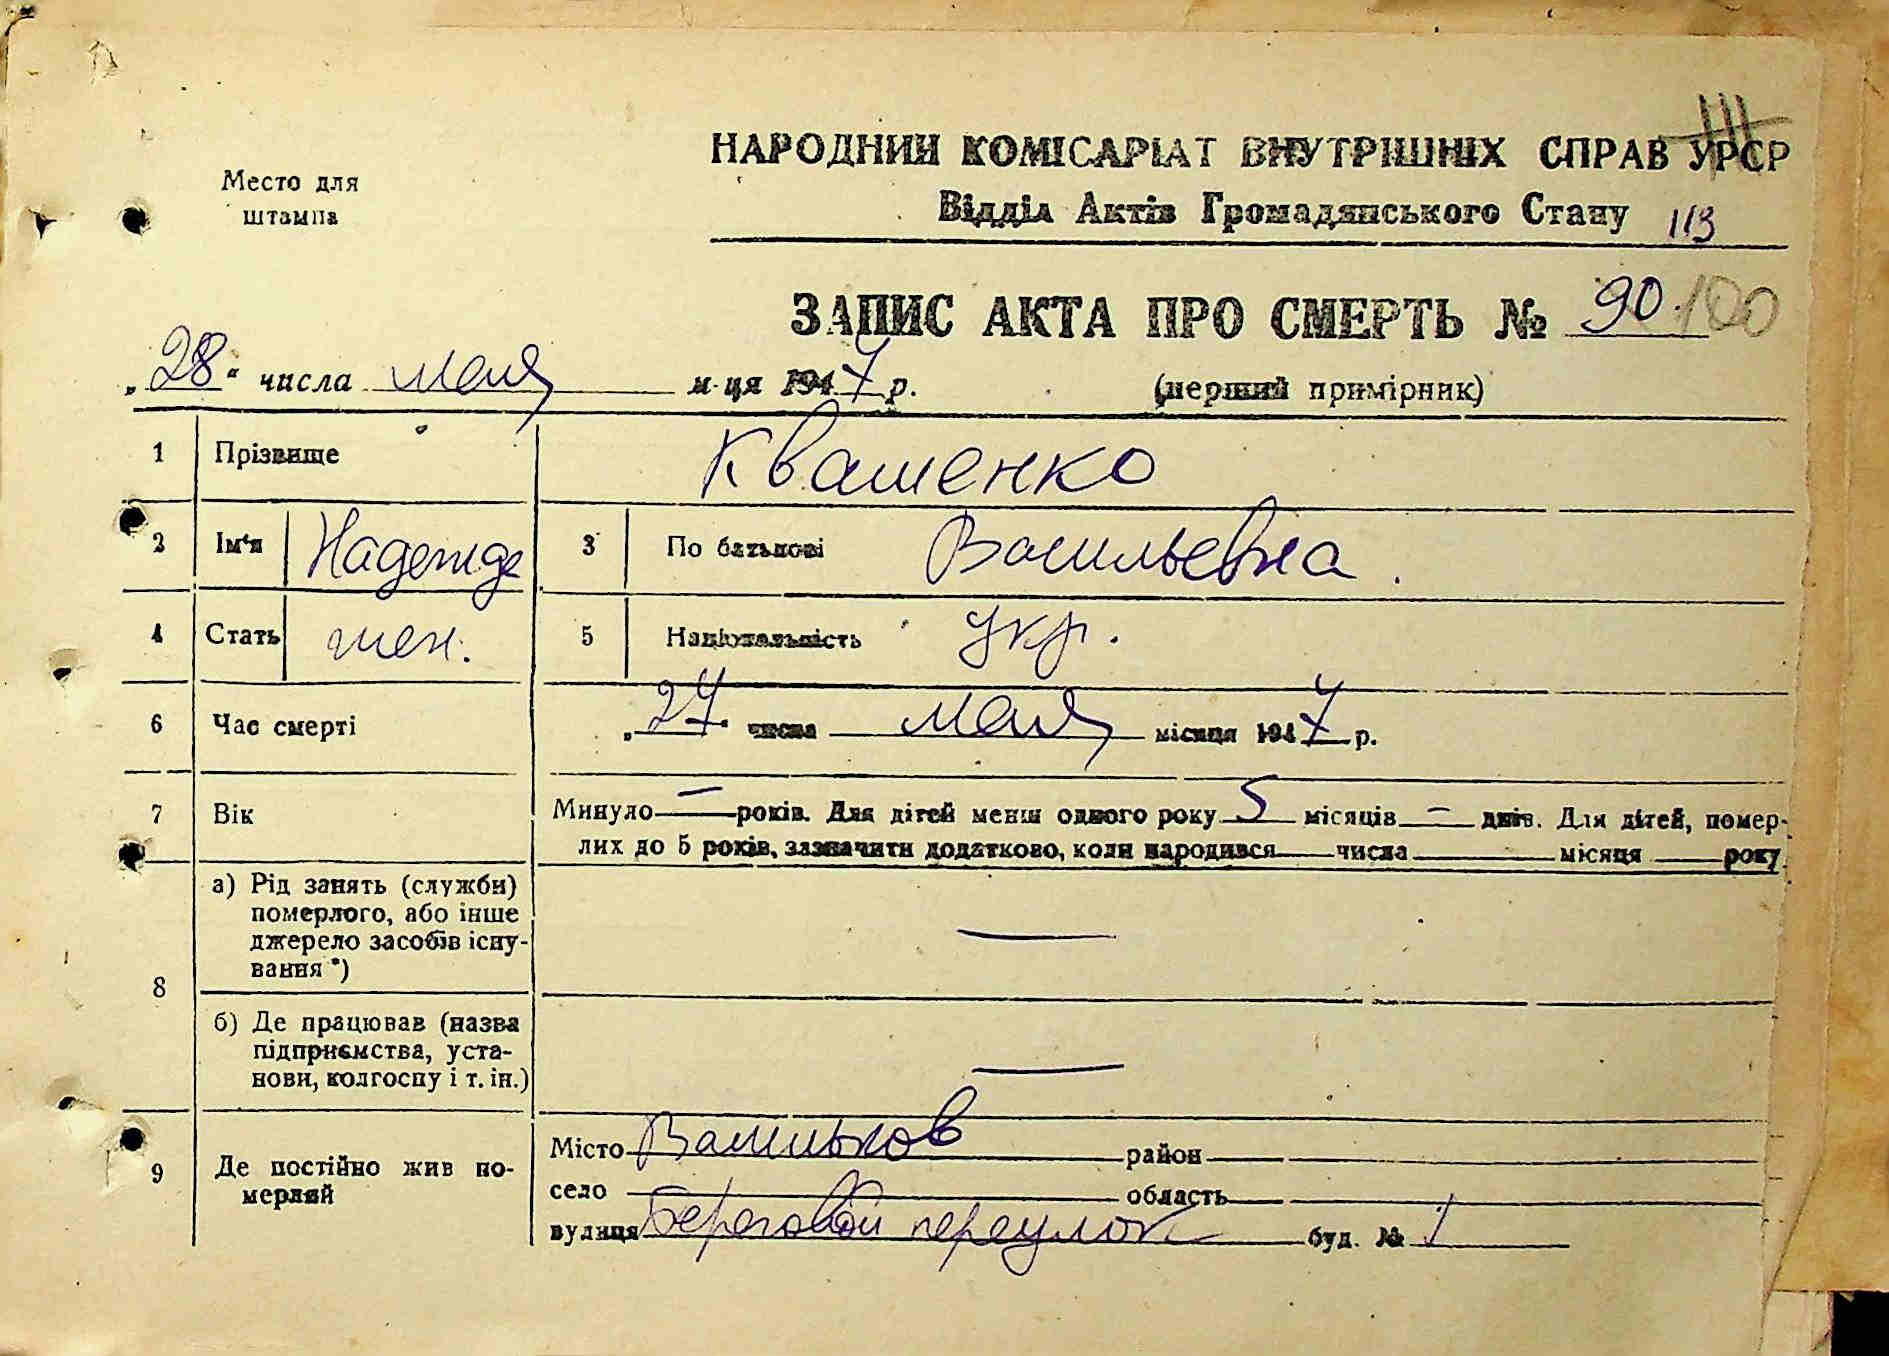 Место для
штампа
НАРОДНИЙ КОМІСАРІАТ ВНУТРІШНІХ СПРАВ УРСР
Відділ Актів Громадянського Стану 113
ЗАПИС АКТА ПРО СМЕРТЬ № 90 100
„28“ числа мая м-ця 1947 р. (перший примірник)
1 Прізвище Квашенко
2 Ім'я Надежде 3 По батькові Васильевна.
4 Стать жен. 5 Національність укр.
6 Час смерті „27" числа мая місяця 1947 р.
7 Вік Минуло — років. Для дітей менш одного року 5 місяців — днів. Для дітей, помер-
лих до 5 років, зазначити додатково, коли народився числа місяця року
8 а) Рід занять (служби)
померлого, або інше
джерело засобів існу-
вання *) —
б) Де працював (назва
підприємства, уста-
нови, колгоспу і т. ін.) —
9 Де постійно жив по-
мерлий
Місто Васильков район
село область
вулиця Береговой переулок буд. № 1